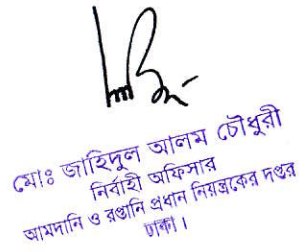 মোঃ জাহিদুল আলম চৌধুরী
নির্বাহী অফিসার
আমদানি ও রপ্তানি প্রধান নিয়ন্ত্রকের দপ্তর
ঢাকা।